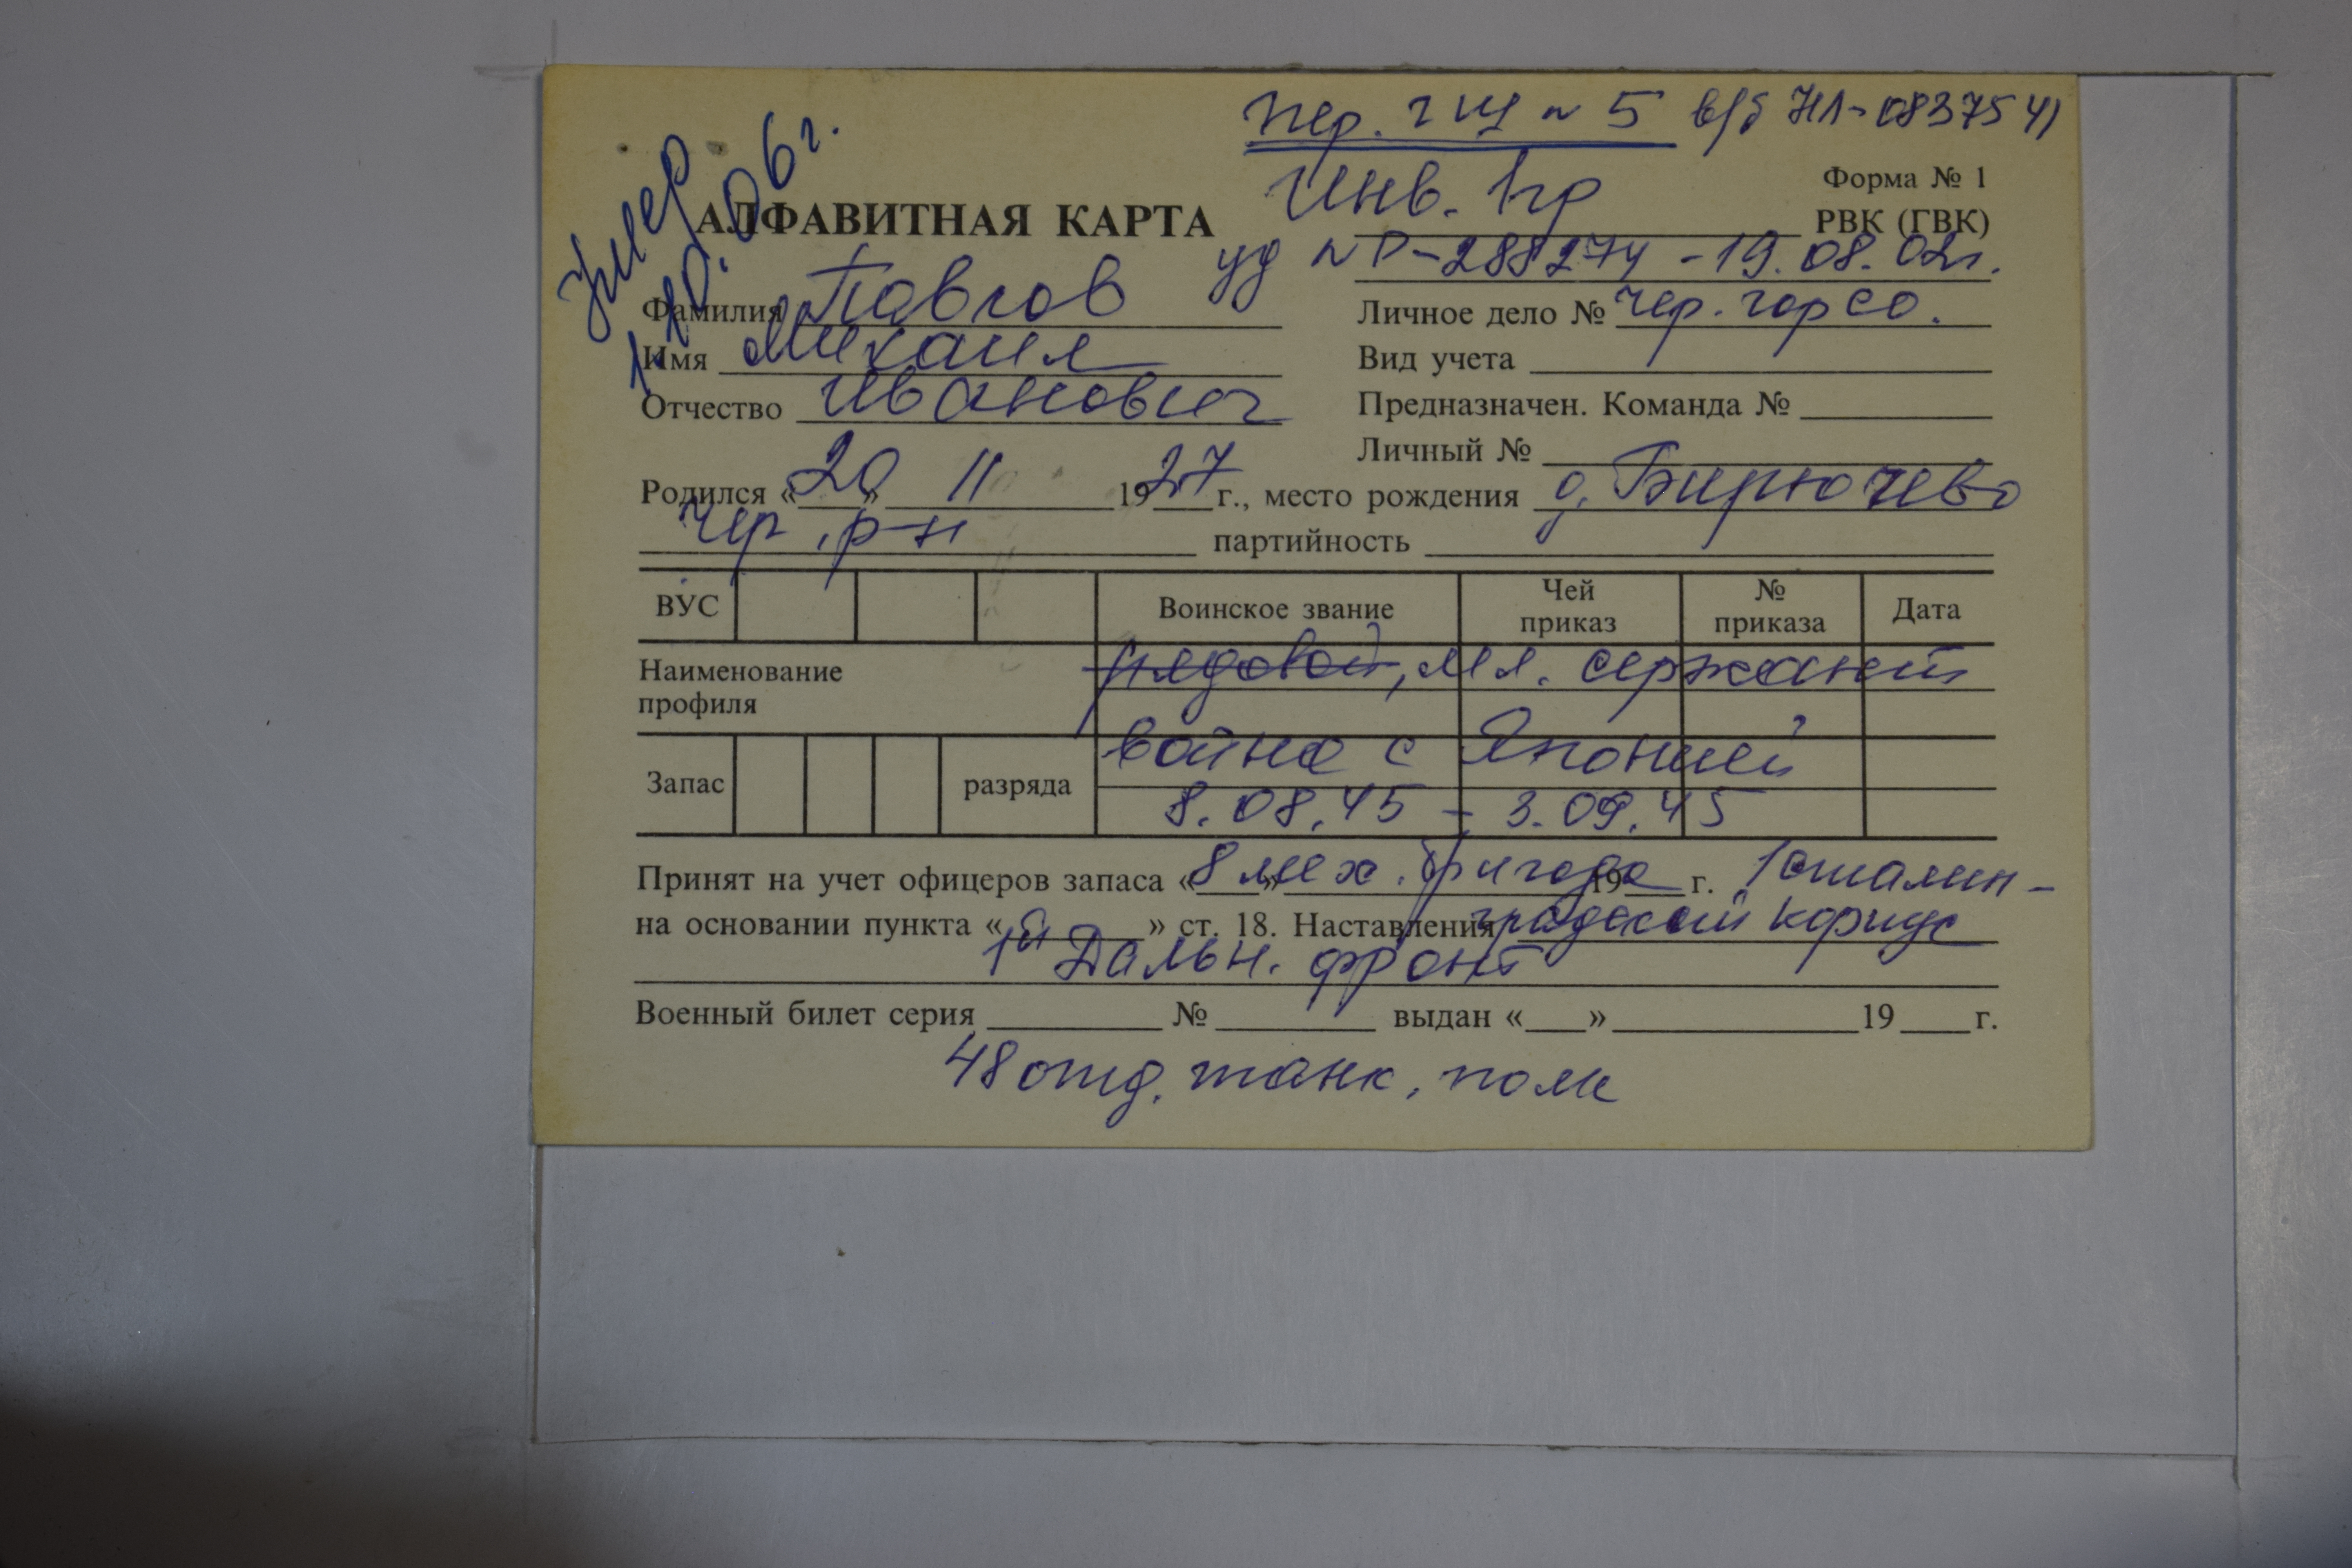 пер. 2 ИЦ № 5 в/б НЛ-0837541
Форма № 1
умер 1.10.06г.
АЛФАВИТНАЯ КАРТА Инв. 1гр РВК (ГВК)
уд № Р-288274 - 19.08.02г.
Фамилия Павлов Личное дело № Чер. гор со.
Имя Михаил Вид учета
Отчество Иванович Предназначен. Команда №
Личный №
Родился «20» 11 1927 г., место рождения д. Бирючево
Чер. р-н партийность
ВУС Воинское звание Чей приказ № приказа Дата
Наименование профиля рядовой, мл. сержант
война с Японией
Запас разряда 8.08.45 - 3.09.45
Принят на учет офицеров запаса « » 19 г. 8 мех. бригада 1 сталин-
на основании пункта « » ст. 18. Наставления градский корпус
1ый Дальн. фронт
Военный билет серия № выдан « » 19 г.
48 отд. танк. полк